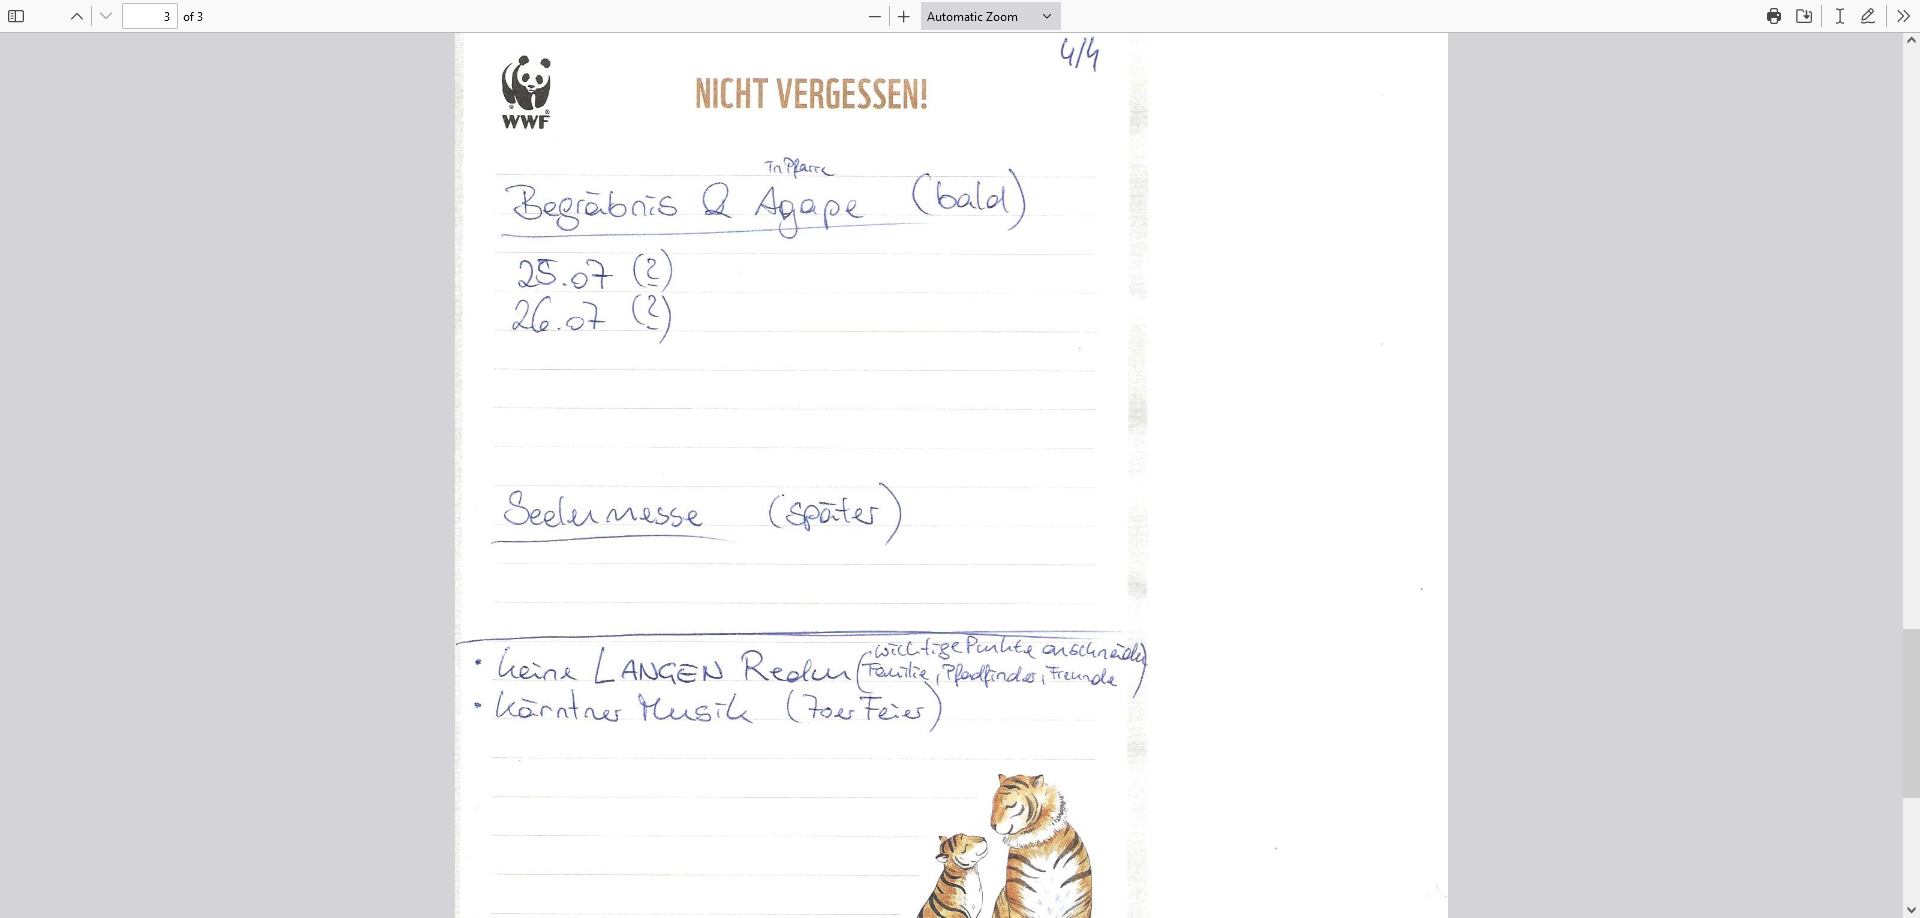 3 of 3 Automatic Zoom
4/4
WWF
NICHT VERGESSEN!
in Pfarre
Begräbnis & Agape (bald)
25.07 (?)
26.07 (?)
Seelenmesse (später)
wichtige Punkte anschneiden
• keine LANGEN Reden (Familie, Pfadfinder, Freunde)
• Kärntner Musik (70er Feier)